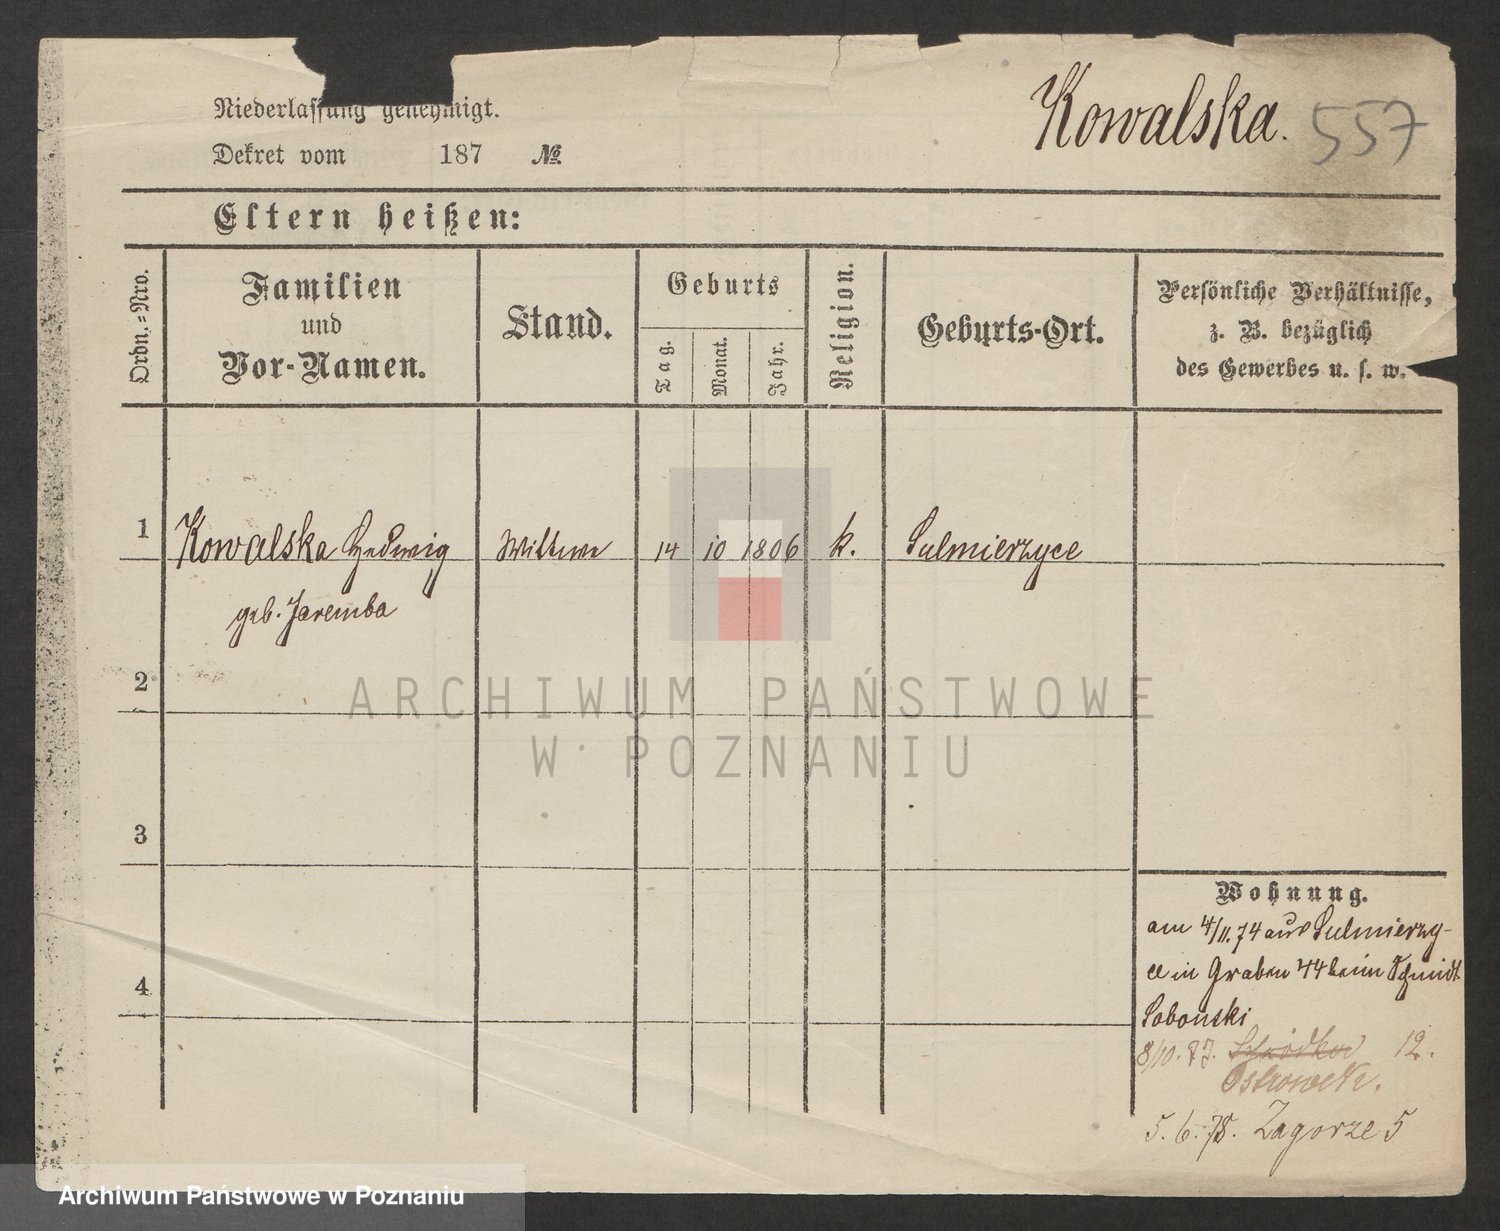 Kowalska. 557
Niederlassung genehmigt.
Dekret vom 187 №
Eltern heißen:
Ordn.=Nro.
Familien
und
Vor-Namen.
Stand.
Geburts
Tag.
Monat.
Jahr.
Religion.
Geburts-Ort.
Persönliche Verhältnisse,
z. B. bezüglich
des Gewerbes u. s. w.
1 Kowalska Hedwig Wittwe 14 10 1806 k. Sulmierzyce
geb. Jaremba
2
3
4
Wohnung.
am 4/11.74 aus Sulmierzy-
ce in Graben 44 beim Schmidt
Sobonski
8/10. 77. Schrodka 12.
Ostrowek.
5. 6. 78. Zagorze 5
ARCHIWUM PAŃSTWOWE
W POZNANIU
Archiwum Państwowe w Poznaniu